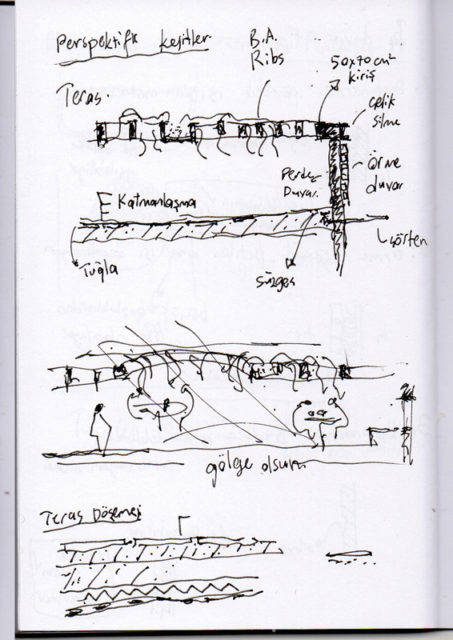 Perspektifik kesitler
B.A.
Ribs
50x70cm²
kiriş
Teras
çelik
silme
örme
duvar
Perde
Duvar.
Katmanlaşma
Tuğla
süzgeç
gölge olsun
Teras Döşemesi